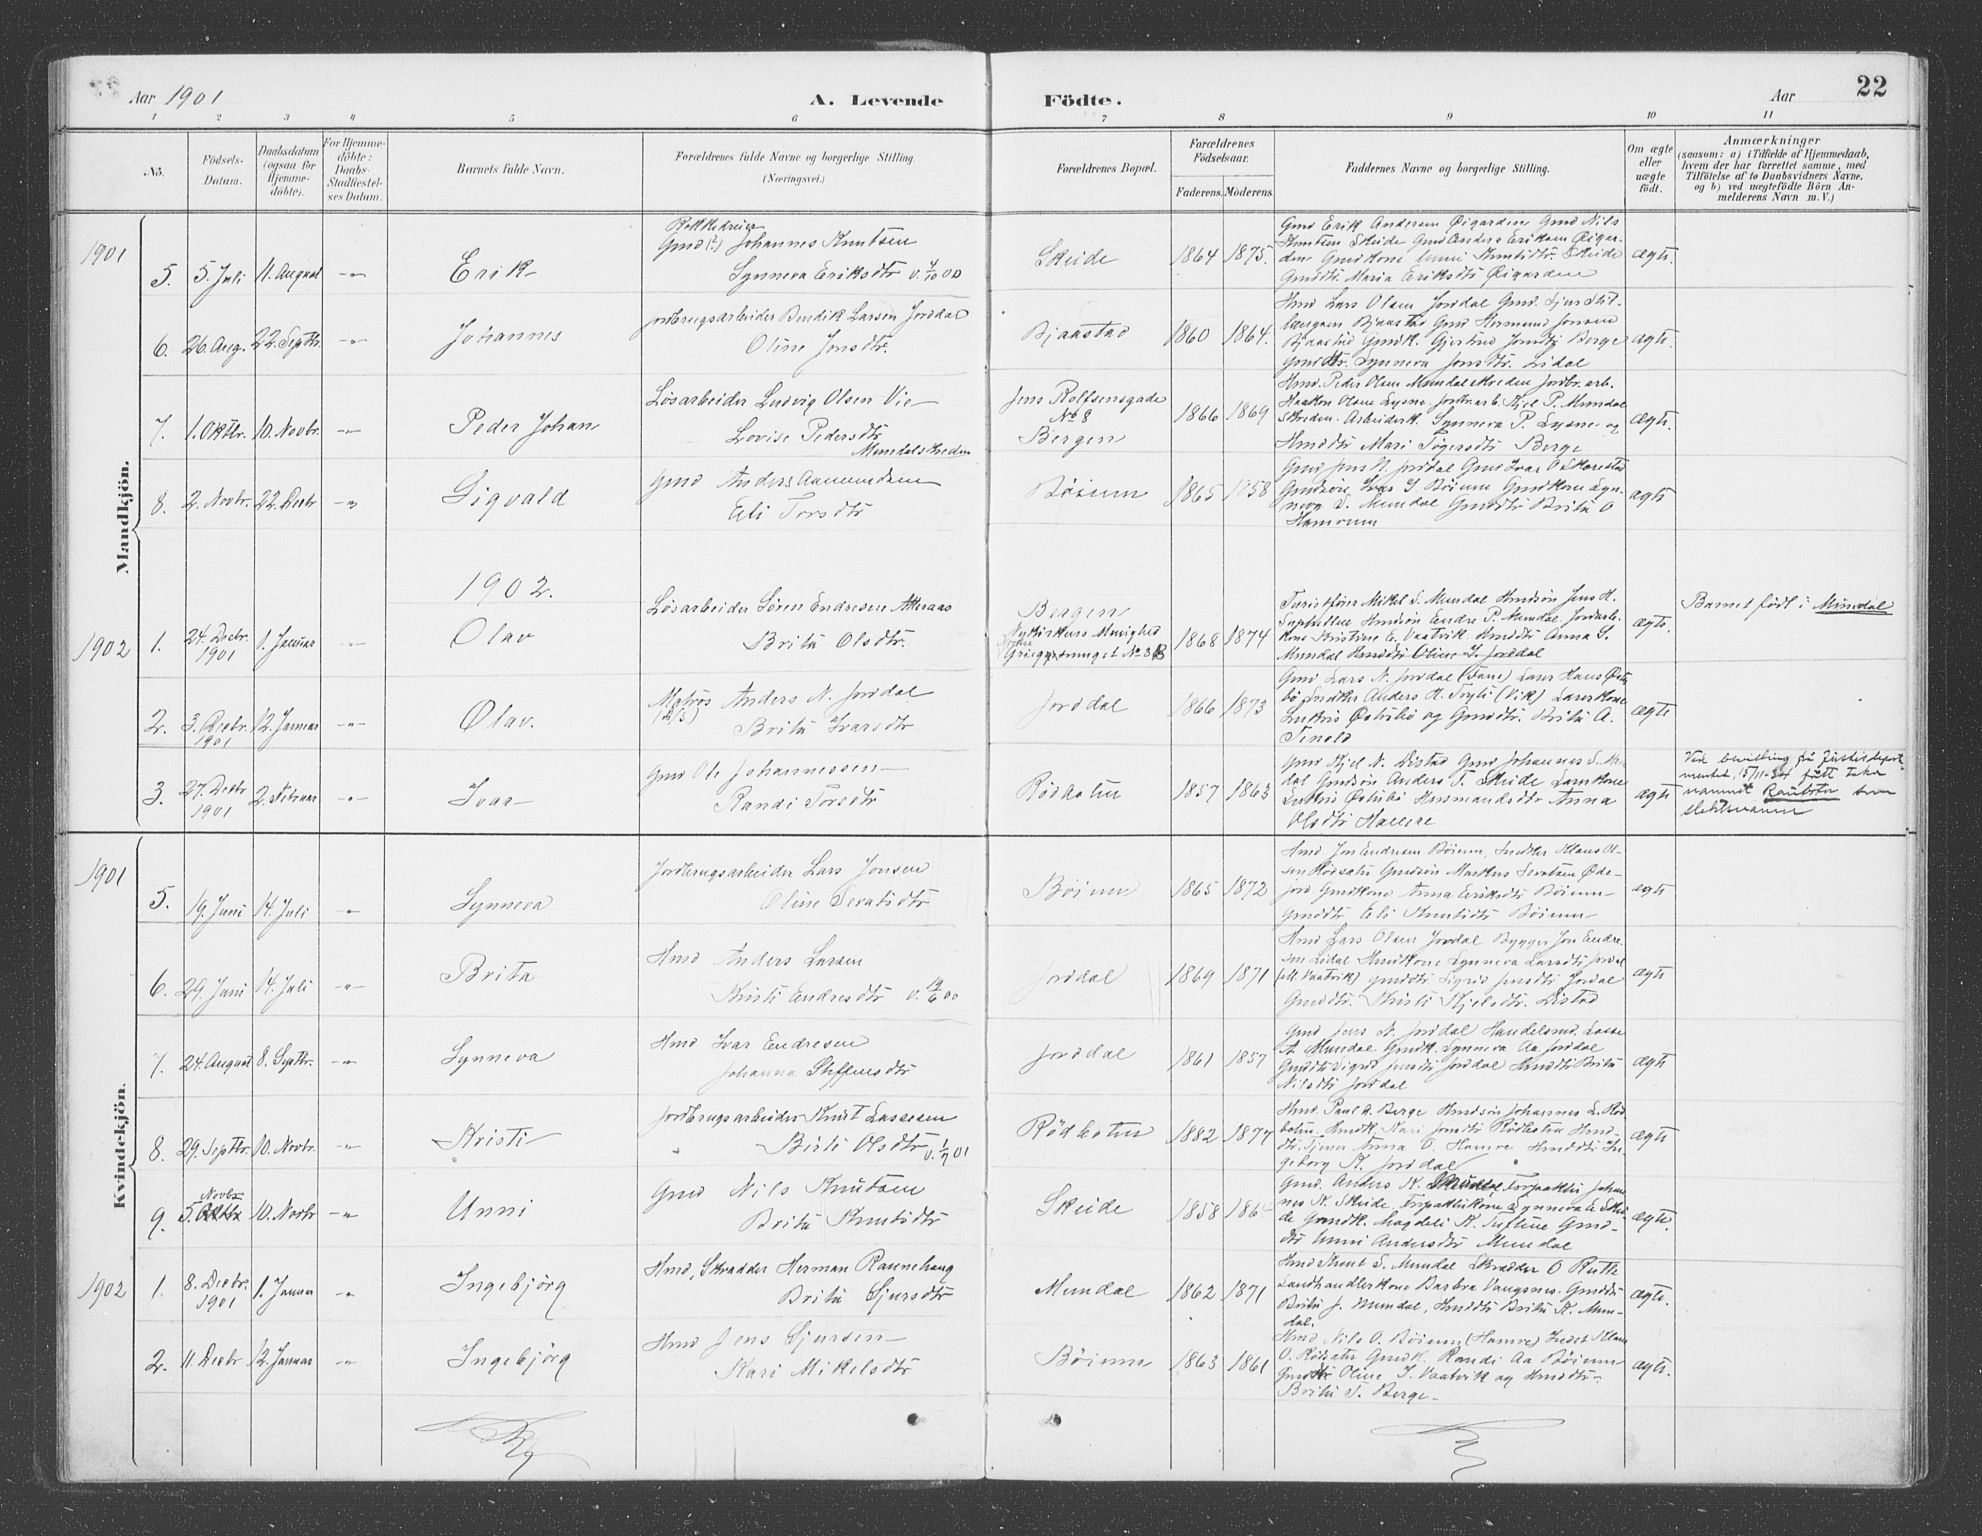 Aar 1901
A. Levende
Födte.
Aar
22
1 2 3 4 5 6 7 8 9 10 11
No.
Födsels-
Datum.
Daabsdatum
(ogsaa for
Hjemme-
döbte).
For Hjemme-
döbte:
Daabs-
Stadfæstel-
ses Datum.
Barnets fulde Navn.
Forældrenes fulde Navne og borgerlige Stilling.
(Næringsvei.)
Forældrenes Bopæl.
Forældrenes
Födselsaar.
Faderens. Moderens.
Faddernes Navne og borgerlige Stilling.
Om ægte
eller
uægte
födt.
Anmærkninger
(saasom: a) i Tilfælde af Hjemmedaab,
hvem der har forrettet samme, med
Tilföielse af to Daabsvidners Navne.
og b) ved uægtefödte Börn An-
melderens Navn m. V.)
Mandkjön.
1901
5. 5. Juli 11. August -"- Erik
Gmd (?) Johannes Knutsen
Synneva Eriksdtr
Skeide 1864 1875.
Gmd Erik Andersen Øigarden Gmd Nils
Knutsen Skeide Gmd Anders Eriksen Øigar-
den Gmdkone Unni Knutsdtr. Skeide
Gmdtr. Maria Eriksdtr Øigarden
ægte.
6. 26. Aug. 22. Septbr. -"- Johannes
Jordbrugsarbeider Bendik Larsen Jordal
Oline Jonsdtr.
Bjaastad 1860 1864.
Hmd Lars Olsen Jordal Gmd. Sjur
Bjaastad Gmd Hermund Jonsen
Bjaastad Gmdk. Gjertrud Jonsdtr Berge
Gmddtr. Synneva Jonsdtr. Lidal
ægte.
7. 1. Oktbr. 10. Novbr. -"- Peder Johan
Løsarbeider Ludvig Olsen Vie
Lovise Pedersdtr
Mundalskreden
Jens Rolfsensgade
No 8
Bergen
1866 1869
Hmd. Peder Olsen Mundalskreden Jordbr.arb.
Haakon Olsen Lysne Jordbr.arb. Kjel P. Mundal
skreden. Arbeiderk. Synneva P. Lysne og
Hmddtr Mari Berge
ægte.
8. 2. Novbr. 22. Decbr -"- Sigvald
Gmd Anders Aamundsen
Eli Torsdtr
Bøium 1865 1858
Gmd Jens N. Jordal Gmd Ivar O Skarestad
Gmdsøn Ivar I. Bøium Gmdkone Syn-
neva S. Mundal Gmddtr Brita O
Hamrum
ægte
1902.
1902
1. 24. Decbr. 1901 1. Januar -"- Olav
Løsarbeider Søren Endresen Atteraas
Brita Olsdtr.
Bergen
Nykirkens Menighed
No 36B
1868 1874
Turistfører Mikel S. Mundal Hmdsøn Jens H.
Supphellen Hmdsøn Endre P. Mundal Jordarb.
kone Kristine E. Vaatvik Hmddtr Anna S.
Mundal Hmddtr Oline I. Jordal
ægte.
Barnet født i Mundal
2. 3. Decbr. 1901 12. Januar -"- Olav.
Matros Anders N. Jordal
Brita Ivarsdtr
Jordal 1866 1873
Gmd Lars N. Jordal (Fane) Lærer Hans Øste
bø Anders H. (Vik) Lærerkone
Østebø og Gmddtr. Brita A.
Tenold
ægte
3. 27. Decbr 1901 2. Februar -"- Ivar
Gmd Ole Johannessen
Randi Torsdtr
Rødkotur 1857 1863
Gmd Kjel N. Distad Gmd Johannes S. Mun-
dal Gmdsøn Anders T. Skeide Lærerkone
Østebø Husmandsdtr Anna
Olsdtr Hamre
ægte
Ved bevilling fra Justisdeparte-
mentet, 15/11-24 tatt
navnet som
slektsnavn
Kvindekjön.
1901
5. 19. Juni 14. Juli -"- Synneva
Jordbrugsarbeider Lars Jonsen
Oline
Bøium 1865 1872
Hmd Jon Endresen Bøium, Klaus Ol-
sen Rødsæter Gmdsøn Markus
Gmdkone Anna Eriksdtr Bøium
Gmddtr Eli Knutsdtr Bøium
ægte
6. 29. Juni 14. Juli -"- Brita
Hmd Anders Larsen
Kristi Endresdtr
Jordal 1869 1871
Hmd Lars Olsen Jordal Bygger Jon Endre-
sen Lidal Hmdkone Synneva Larsdtr Jordal
(af Vaatvik) Gmddtr Sigrid Jensdtr Jordal
Gmddtr. Kristi Kjelsdtr. Distad
ægte
7. 24. August 8. Septbr. -"- Synneva
Hmd Ivar Endresen
Johanna Steffensdtr
Jordal 1861 1857
Gmd Jens N. Jordal Handelsmd. Lasse
A. Mundal Gmdk. Synneva Aa Jordal
Gmddtr Sigrid Jensdtr Jordal Hmddtr Brita
Nilsdtr Jordal
ægte
8. 29. Septbr. 10. Novbr. -"- Kristi
Jordbrugsarbeider Knut Lassesen
Brita Olsdtr
Rødkotur 1882 1877
Hmd. Paul A. Berge Hmdsøn Johannes L. Rød
kotur. Hmdk. Kari Jonsdtr Rødkotur Hmd-
dtr Anna O. Hamre Hmddtr In-
geborg K. Jordal
ægte
9. 5. Novbr 10. Novbr -"- Unni
Gmd Nils Knutsen
Brita Knutsdtr
Skeide 1858
Gmd. Anders K. Skeide Forpagter Johan
nes K. Skeide Forpagterkone Synneva E Skei
de Gmdk. Magdeli K. Gmd-
dtr Unni Andersdtr Mundal
ægte.
1902
1. 8. Decbr. 1901 1. Januar -"- Ingebjörg
Hmd, Skrædder Herman Rannehaug
Brita Sjursdtr
Mundal 1862 1871
Hmd Knut S. Mundal Skrædder O
Landhandlerkone Barbra Vangsnes. Gmddtr
Brita J. Mundal, Hmddtr Brita K. Mun-
dal.
ægte.
2. 11. Decbr 12. Januar -"- Ingebjörg
Hmd Jens Sjursen
Kari Mikelsdtr
Bøium 1863 1861
Hmd Nils O. Bøium (Hamre) Klaus
O. Rødsæter Gmdk. Randi Aa Bøium
Gmddtr Oline I. Vaatvik og Hmddtr-
Brita T. Berge-
ægte.